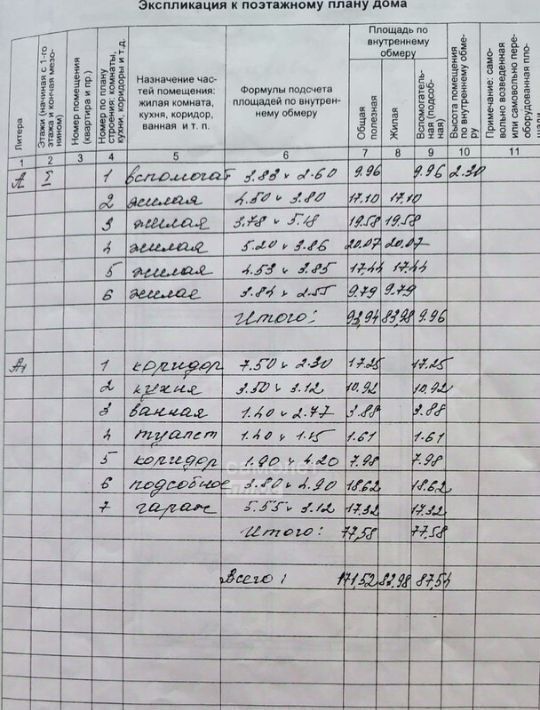 Экспликация к поэтажному плану дома
Литера
Этажи (начиная с 1-го этажа и кончая мезонином)
Номер помещения (квартира и пр.)
Номер по плану строения: комнаты, кухни, коридоры и т.д.
Назначение частей помещения: жилая комната, кухня, коридор, ванная и т. п.
Формулы подсчета площадей по внутреннему обмеру
Площадь по внутреннему обмеру
Общая полезная
Жилая
Вспомогательная (подсобная)
Высота помещения по внутреннему обмеру
Примечание: самовольно возведенная или самовольно переоборудованная площадь
1 2 3 4 5 6 7 8 9 10 11
А I 1 вспомогат 3.83 х 2.60 9.96 9.96 2.30
2 жилая 4.50 х 3.80 17.10 17.10
3 жилая 3.78 х 5.18 19.58 19.58
4 жилая 5.20 х 3.86 20.07 20.07
5 жилая 4.53 х 3.85 17.44 17.44
6 жилая 3.84 х 2.55 9.79 9.79
Итого: 93,94 83,98 9.96
А1 1 коридор 7.50 х 2.30 17.25 17.25
2 кухня 3.50 х 3.12 10,92 10,92
3 ванная 1.40 х 2.77 3.88 3.88
4 туалет 1.40 х 1.15 1.61 1.61
5 коридор 1.90 х 4.20 7.98 7.98
6 подсобное 3.80 х 4.90 18.62 18.62
7 гараж 5.55 х 3.12 17.32 17.32
Итого: 77,58 77.58
Всего: 171.52 83,98 87.54